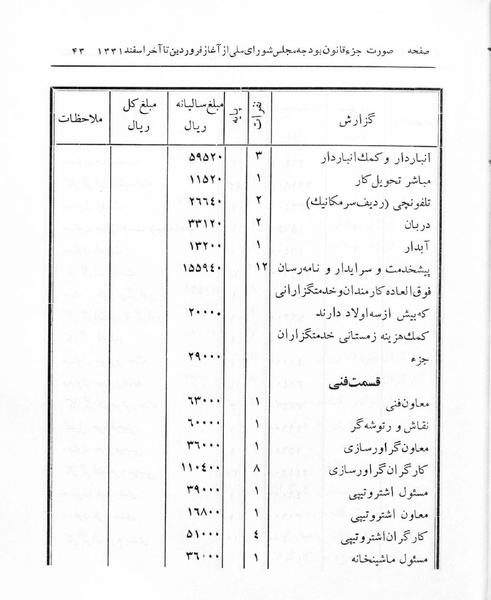 صفحه صورت جزء قانون بودجه مجلس شورای ملی از آغاز فروردین تا آخر اسفند ۱۳۳۱ ۴۳
گزارش نفرات پایه مبلغ سالیانه ریال مبلغ کل ریال ملاحظات
انباردار و کمک انباردار ۳ ۵۹۵۲۰
مباشر تحویل کار ۱ ۱۱۵۲۰
تلفونچی (ردیف سرمکانیک) ۲ ۲۶۶۴۰
دربان ۲ ۳۳۱۲۰
آبدار ۱ ۱۳۲۰۰
پیشخدمت و سرایدار و نامه رسان ۱۲ ۱۵۵۹۴۰
فوق العاده کارمندان و خدمتگزارانی
که بیش از سه اولاد دارند ۲۰۰۰۰
کمک هزینه زمستانی خدمتگزاران
جزء ۲۹۰۰۰
قسمت فنی
معاون فنی ۱ ۶۳۰۰۰
نقاش و رتوشه گر ۱ ۶۰۰۰۰
معاون گراورسازی ۱ ۳۶۰۰۰
کارگران گراورسازی ۸ ۱۱۰۴۰۰
مسئول اشتروتیپی ۱ ۳۹۰۰۰
معاون اشتروتیپی ۱ ۱۶۸۰۰
کارگران اشتروتیپی ۴ ۵۱۰۰۰
مسئول ماشینخانه ۱ ۳۶۰۰۰